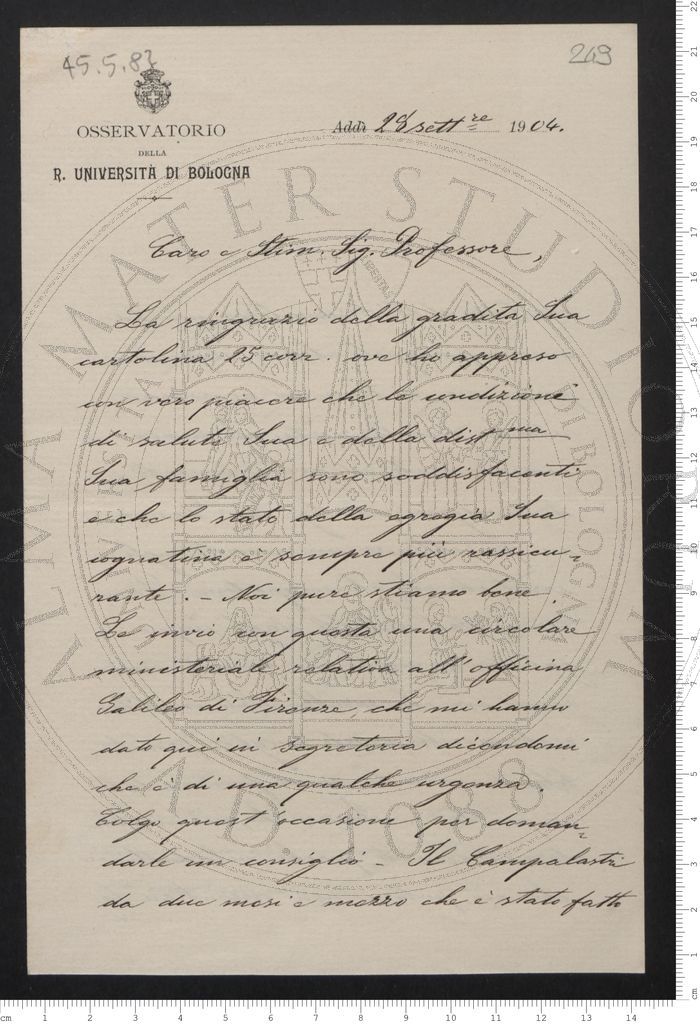 45.5.82
249
OSSERVATORIO
DELLA
R. UNIVERSITÀ DI BOLOGNA
Addì 28 sett.re 1904.
Caro e Stim. Sig. Professore,
La ringrazio della gradita Sua
cartolina 25 corr. ove ho appreso
con vero piacere che le condizioni
di salute Sua e della dist.ma
Sua famiglia sono soddisfacenti
e che lo stato della egregia Sua
cognatina è sempre più rassicu-
rante. - Noi pure stiamo bene.
Le invio con questa una circolare
ministeriale relativa all'officina
Galileo di Firenze, che mi hanno
dato qui in segreteria dicendomi
che è di una qualche urgenza.
Colgo quest'occasione per doman-
darle un consiglio - Il Campalastri
da due mesi e mezzo che è stato fatto
ALMA MATER STUDIORUM
A.D. 1088